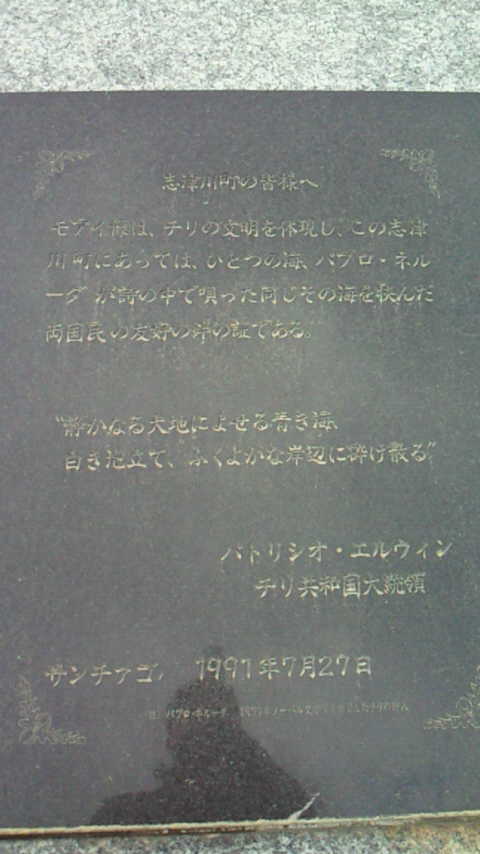 志津川町の皆様へ
モアイ像は、チリの文明を体現し、この志津
川町にあっては、ひとつの海、パブロ・ネル
ーダが詩の中で唄った同じその海を挟んだ
両国民の友好の絆の証である。
“静かなる大地によせる青き海、
白き泡立て、ふくよかな岸辺に砕け散る”
パトリシオ・エルウィン
チリ共和国大統領
サンチアゴ、 1991年7月27日
パブロ・ネルーダ